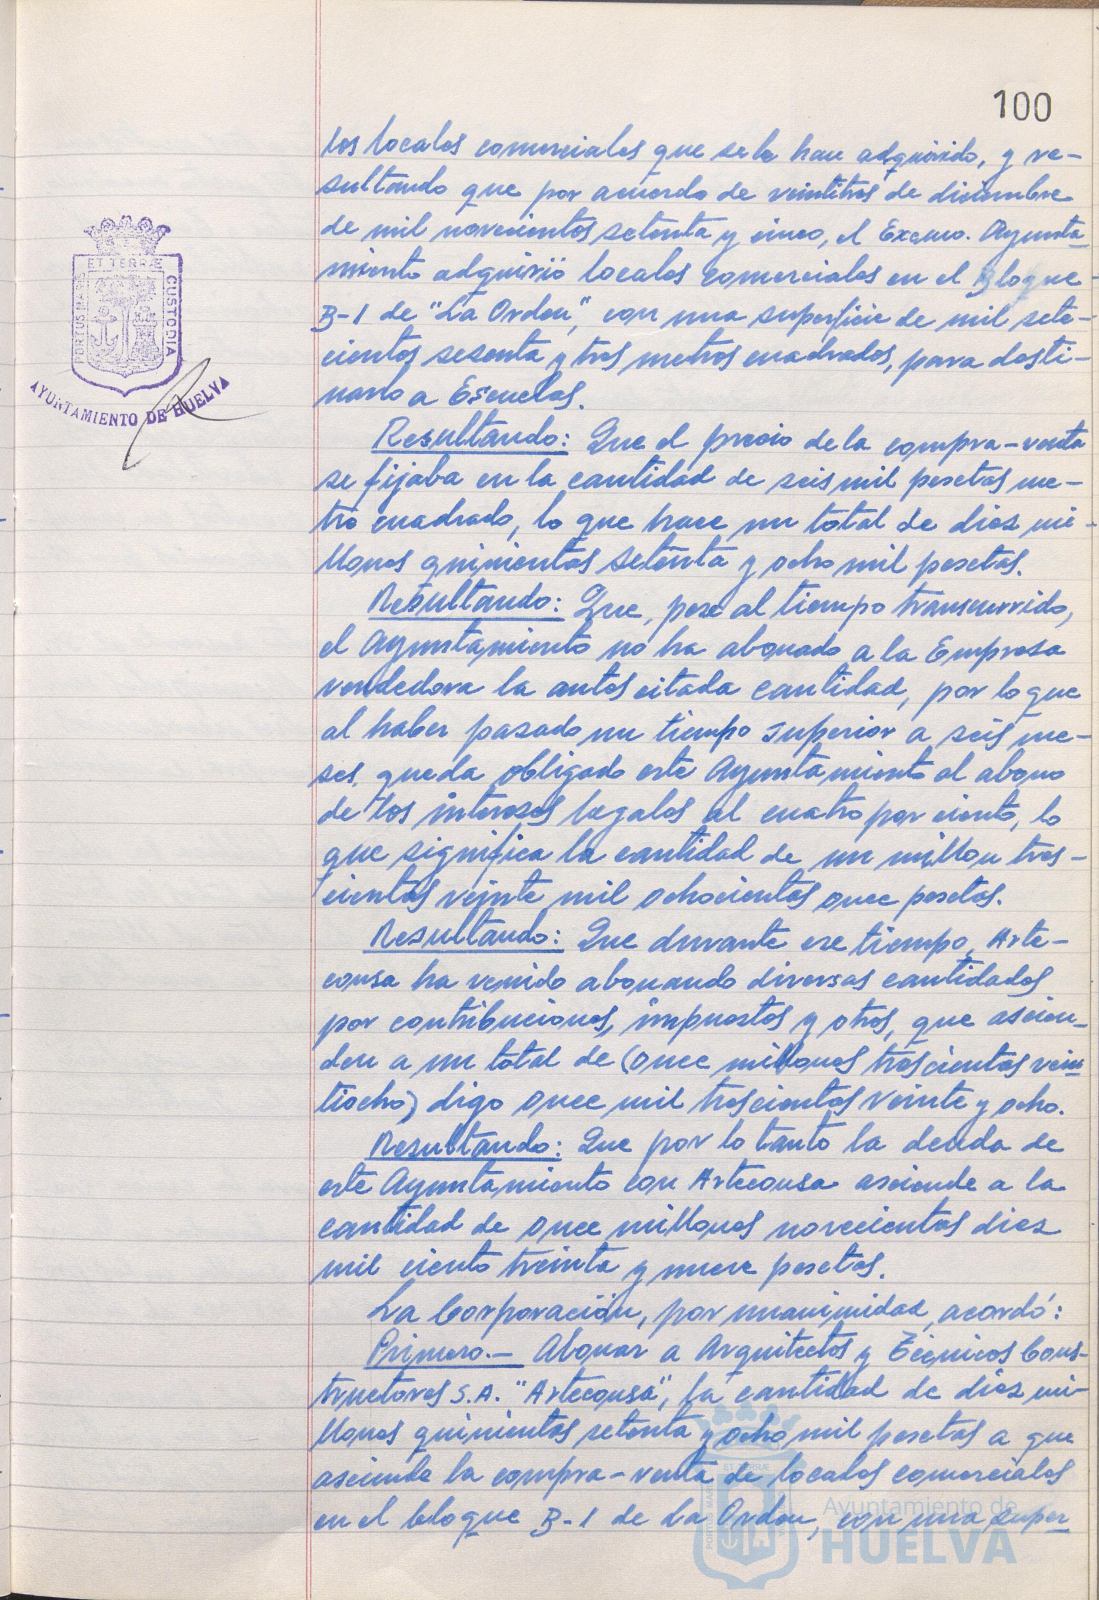 100
los locales comerciales que se le han adquirido, y re-
sultando que por acuerdo de veintitres de diciembre
de mil novecientos setenta y cinco, el Excmo. Ayunta-
miento adquirió locales comerciales en el Bloque
B-1 de "La Orden", con una superficie de mil sete-
cientos sesenta y tres metros cuadrados, para desti-
narlo a Escuelas.
Resultando: Que el precio de la compra-venta
se fijaba en la cantidad de seis mil pesetas me-
tro cuadrado, lo que hace un total de diez mi-
llones quinientos setenta y ocho mil pesetas.
Resultando: Que, pese al tiempo transcurrido,
el Ayuntamiento no ha abonado a la Empresa
vendedora la antes citada cantidad, por lo que
al haber pasado un tiempo superior a seis me-
ses, queda obligado este Ayuntamiento al abono
de los intereses legales al cuatro por ciento, lo
que significa la cantidad de un millon tres-
cientos veinte mil ochocientos once pesetas.
Resultando: Que durante ese tiempo, Arte-
consa ha venido abonando diversas cantidades
por contribuciones, impuestos y otros, que ascien-
den a un total de (once millones trescientos vein
tiocho) digo once mil trescientos veinte y ocho.
Resultando: Que por lo tanto la deuda de
este Ayuntamiento con Arteconsa asciende a la
cantidad de once millones novecientos diez
mil ciento treinta y nueve pesetas.
La Corporación, por unanimidad, acordó:
Primero.- Abonar a Arquitectos y Técnicos Cons-
tructores S.A. "Arteconsa", la cantidad de diez mi-
llones quinientos setenta y ocho mil pesetas a que
asciende la compra-venta de locales comerciales
en el bloque B-1 de La Orden, con una super
PORTUS MARIS ET TERRÆ CUSTODIA
AYUNTAMIENTO DE HUELVA
Ayuntamiento de
HUELVA